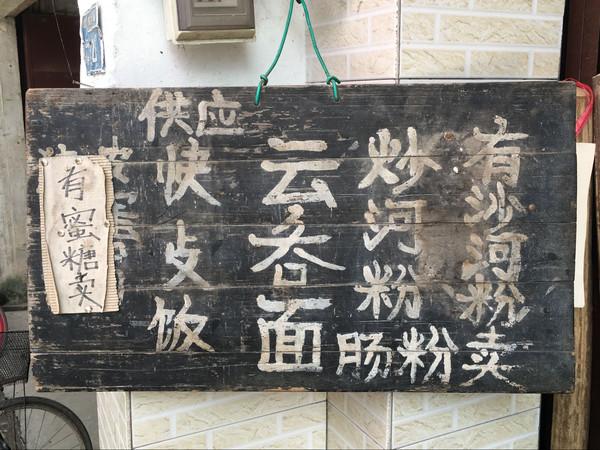 有沙河粉卖
炒河粉
肠粉
云吞面
供应
快歺饭
有蜜糖卖